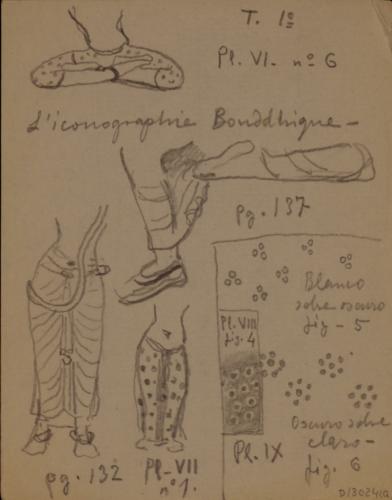 T. 1º
Pl. VI. nº 6
L'iconographie Bouddhique -
pg. 137
Blanco
sobre oscuro
fig - 5
Pl. VIII
fig. 4
Oscuro sobre
claro -
fig. 6
Pl. IX
pg. 132
Pl - VII
nº 1.